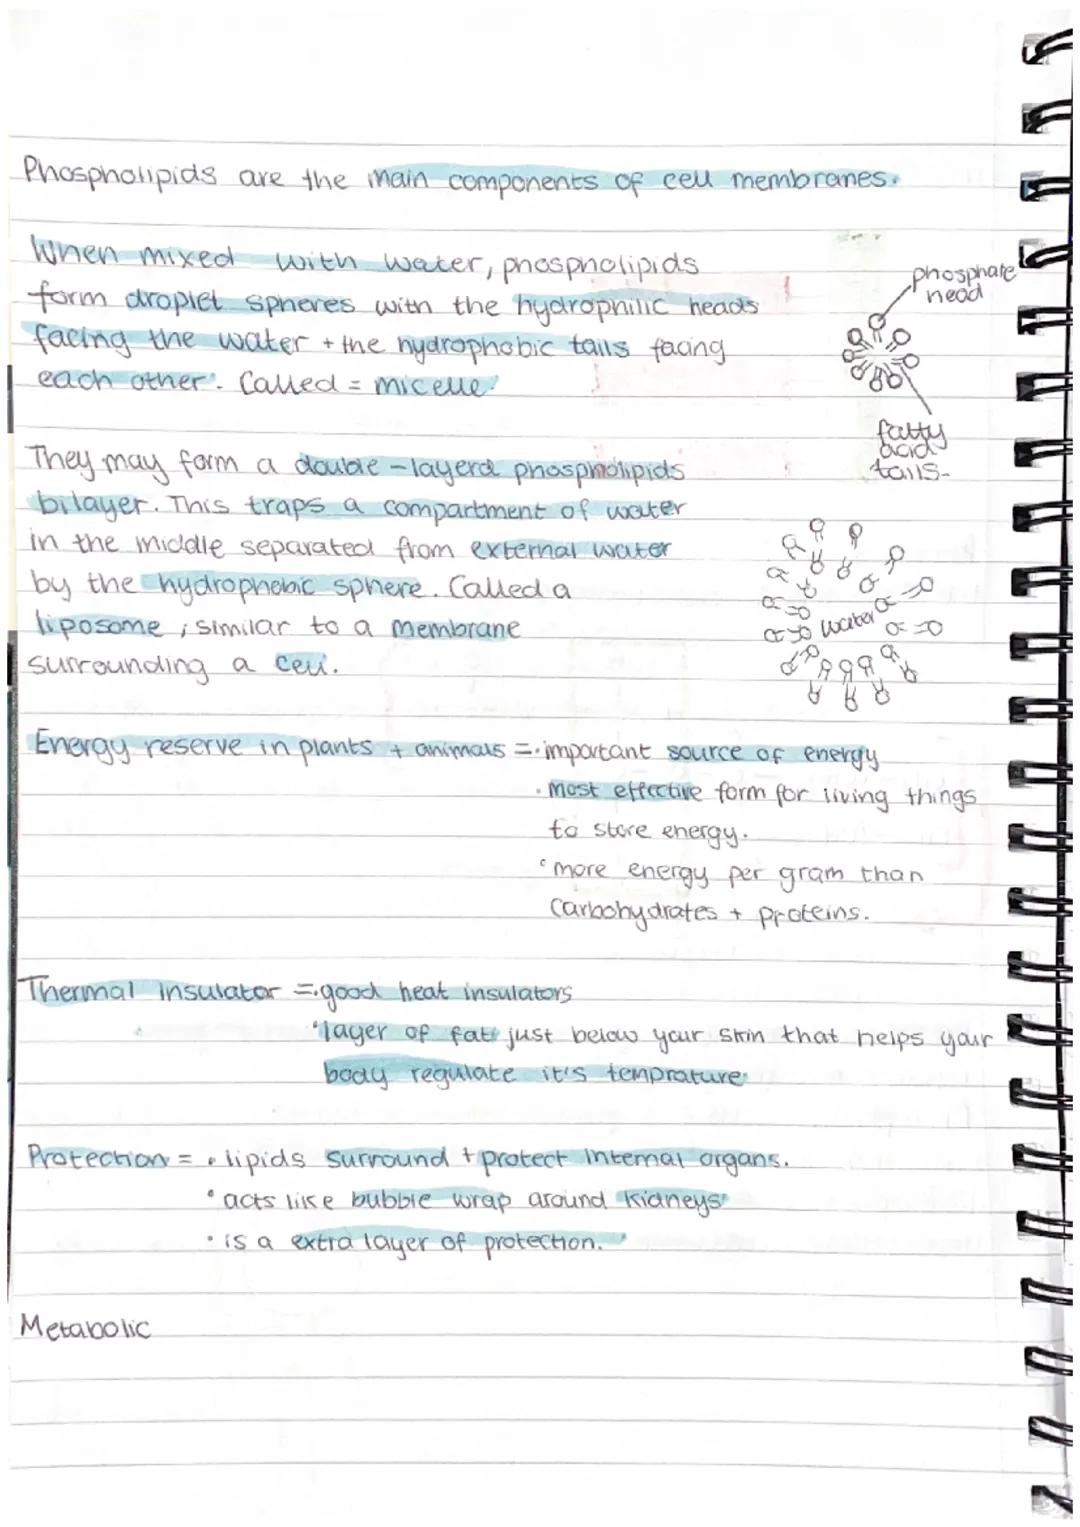 Phospholipids are the main components of cell membranes.
When mixed with water, phospholipids
form droplet spheres with the hydrophilic heads
facing the water + the hydrophobic tails facing
each other. Called = micelle.
phosphate
head
fatty
acid
tails-
They may form a double-layerd phospholipids
bilayer. This traps a compartment of water
in the middle separated from external water
by the hydrophobic sphere. Called a
liposome ; similar to a membrane
surrounding a cell.
water
Energy reserve in plants + animals = · important source of energy
· most effective form for living things
to store energy.
· more energy per gram than
carbohydrates + proteins.
Thermal insulator = · good heat insulators
· layer of fat just below your skin that helps your
body regulate it's temprature.
Protection = · lipids surround + protect internal organs.
· acts like bubble wrap around kidneys
· is a extra layer of protection.
Metabolic